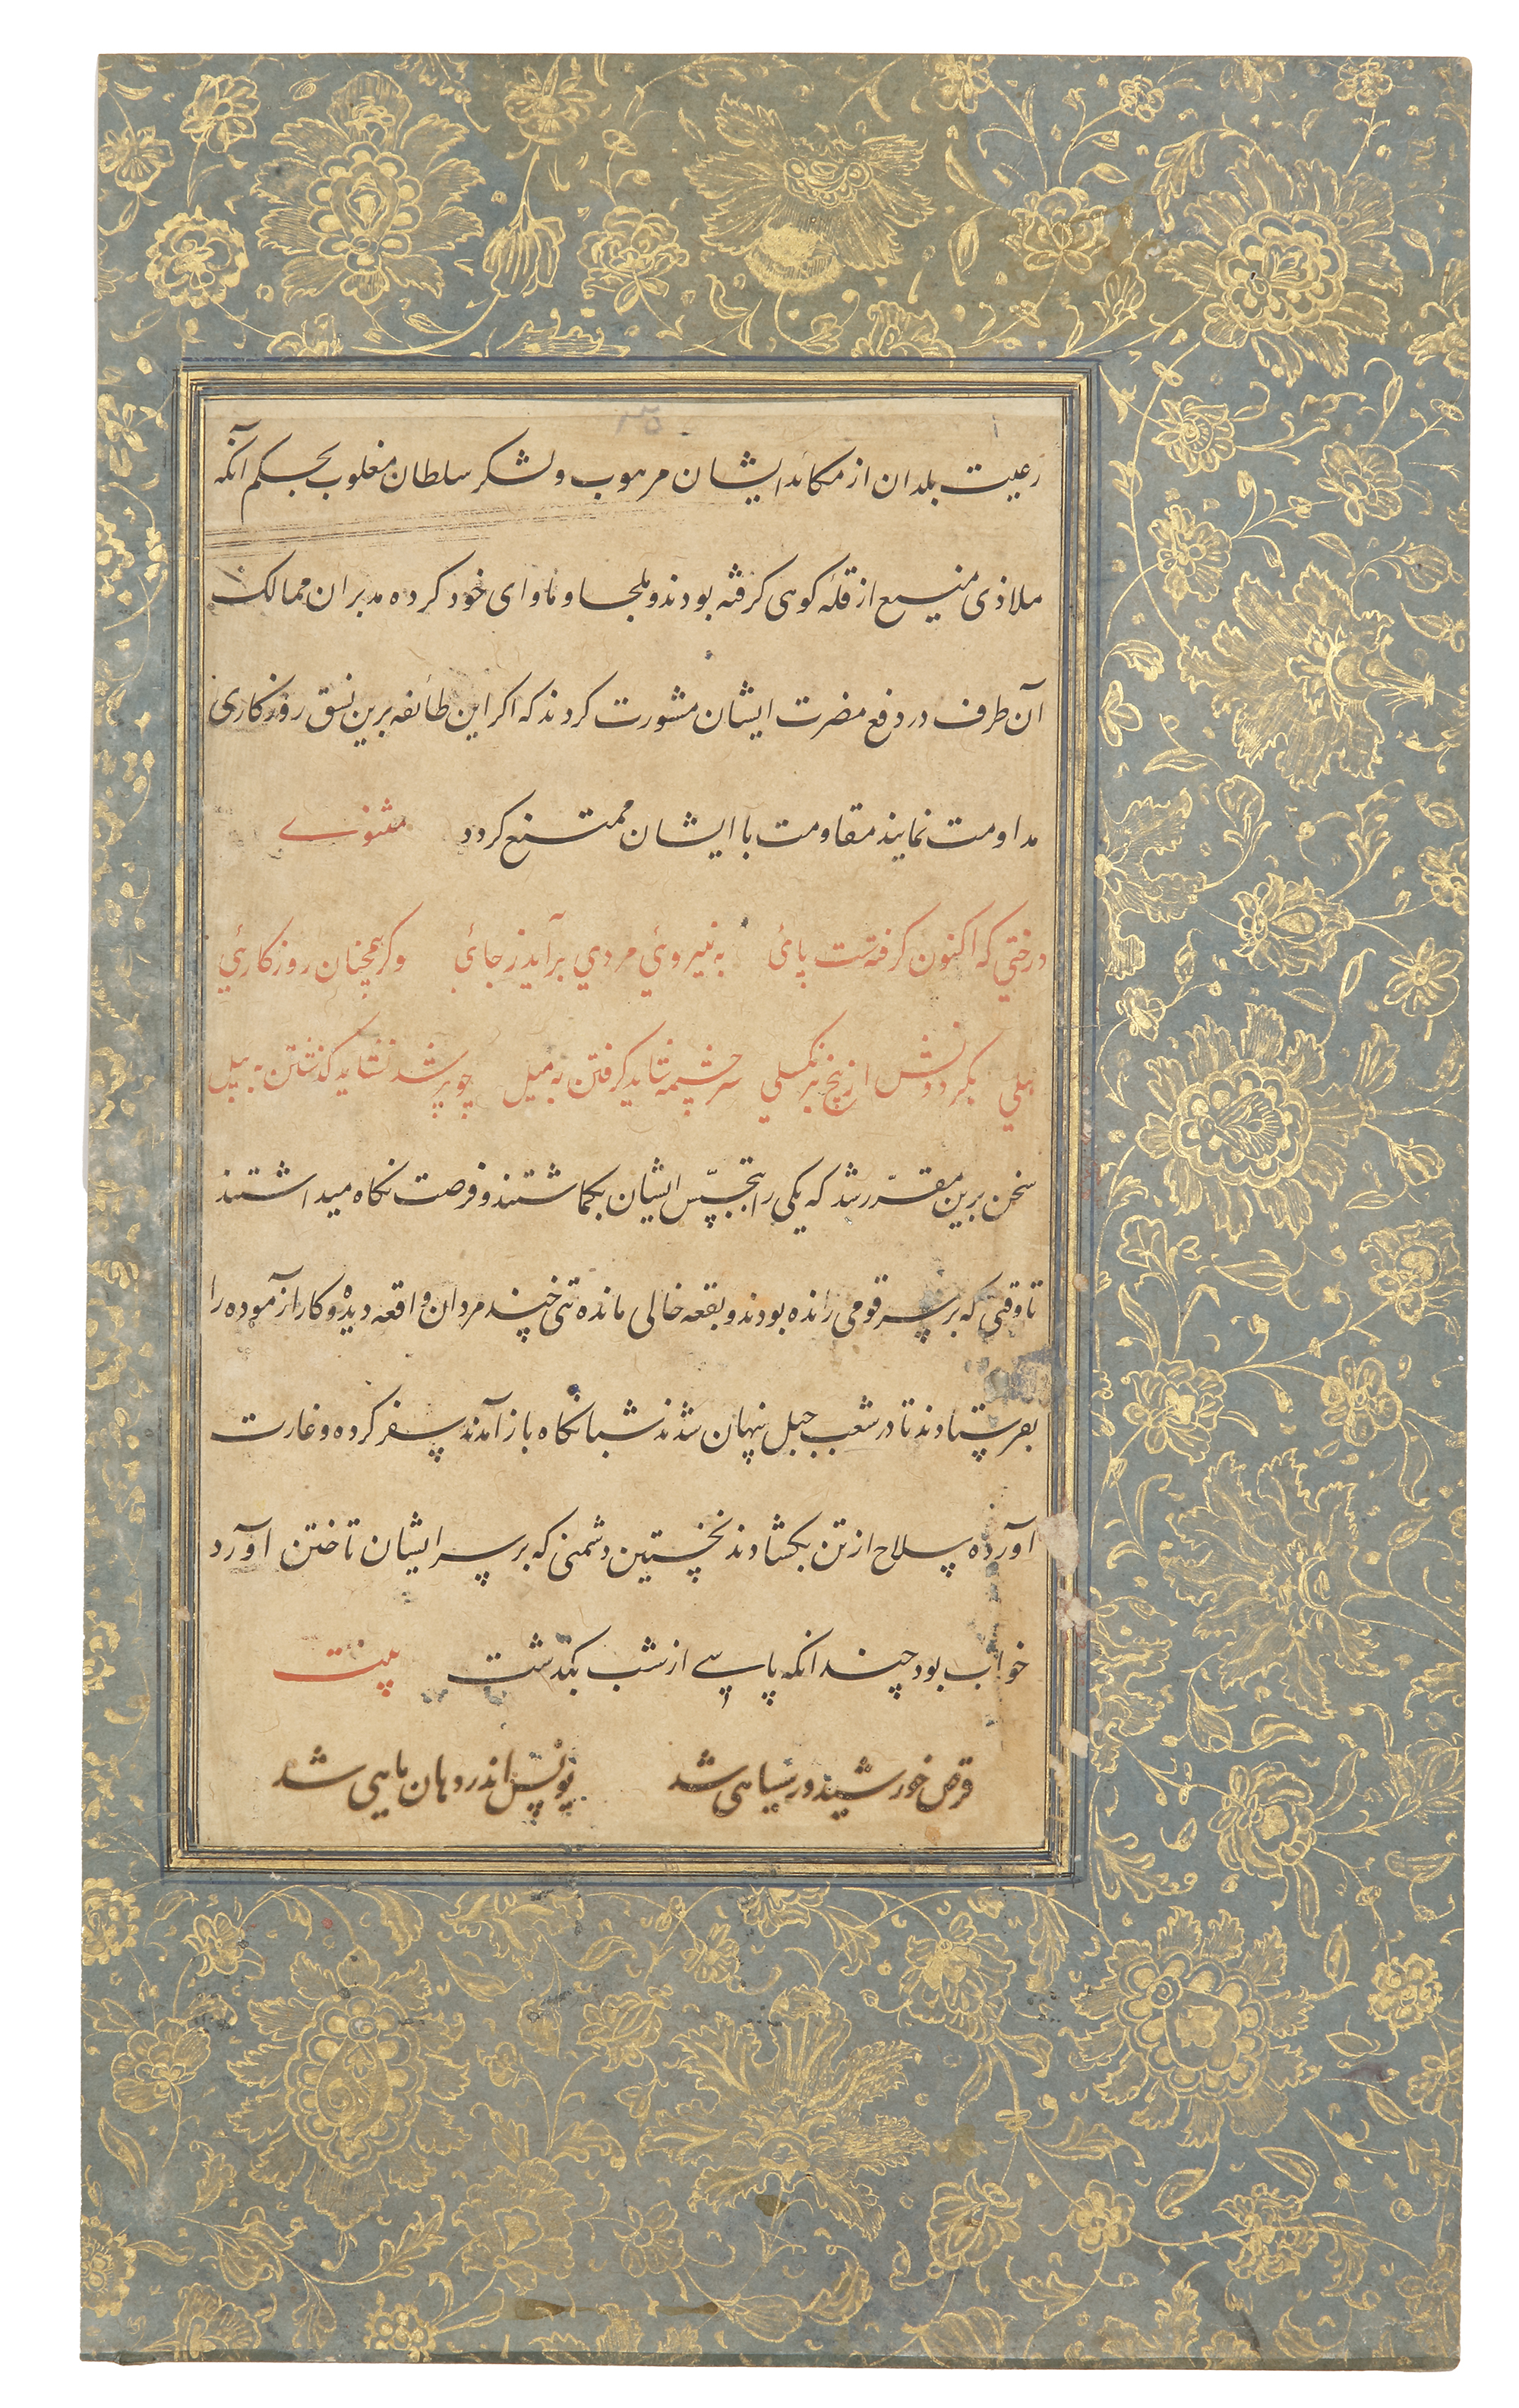 رعیت بلدان از مکائد ایشان مرهوب و لشکر سلطان مغلوب بحکم آنکه
ملاذی منیع از قلهٔ کوهی کرفته بودند و ملجا و ماوای خود کرده مدبران ممالک
آن طرف در دفع مضرت ایشان مشورت کردند که اکر این طائفه برین نسق روزکاری
مداومت نمایند مقاومت با ایشان ممتنع کردد مثنوے
درختي که اکنون کرفتست پائی به نیروئي مردي برآید ز جائي وکر همچنان روزکارئي
هلي بکردونش از بیخ برنکسلي سر چشمه شاید کرفتن به میل چو پر شد نشاید کذشتن به پیل
سخن برین مقرّر شد که یکی را بتجسّس ایشان بکماشتند و فرصت نکاه میداشتند
تا وقتی که بر سر قومی رانده بودند و بقعه خالی مانده تنی چند مردان واقعه دیده و کارازموده را
بفرستادند تا در شعب جبل پنهان شدند شبانکاه باز آمدند سفر کرده و غارت
آورده سلاح از تن بکشادند نخستین دشمنی که بر سر ایشان تاختن اورد
خواب بود چندانکه پاسے از شب بکذشت بیت
قرص خورشید در سیاهی شد یونس اندر دهان ماهی شد